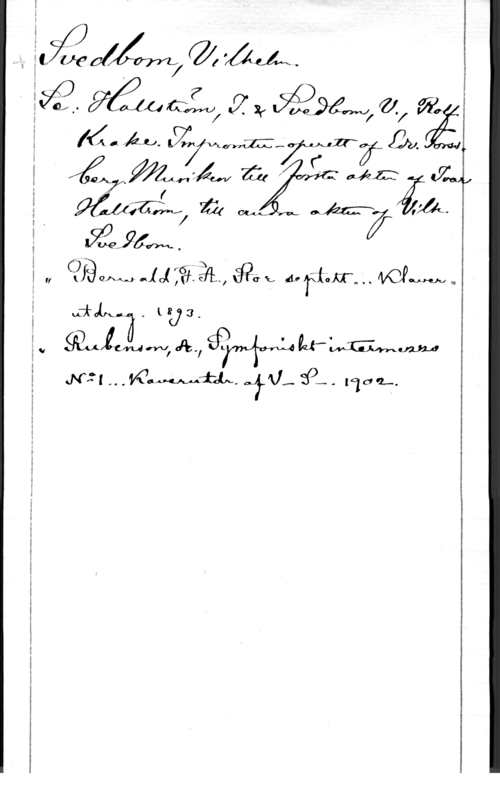 Svedbom, Vilhelm.
Se: Hallström, I. & Svedbom, V., Rolf
Krake. Impromtu-operett af Edv. Forss-
berg. Musiken till första akten af Ivar
Hallström, till andra akten af Vilh.
Svedbom.
" Berwald, F. A., Stor septett... Klaver-
utdrag. 1893.
" Rubenson, A., Symfoniskt intermezzo
No 1... Klaverutdr. af V_ S_. 1902.